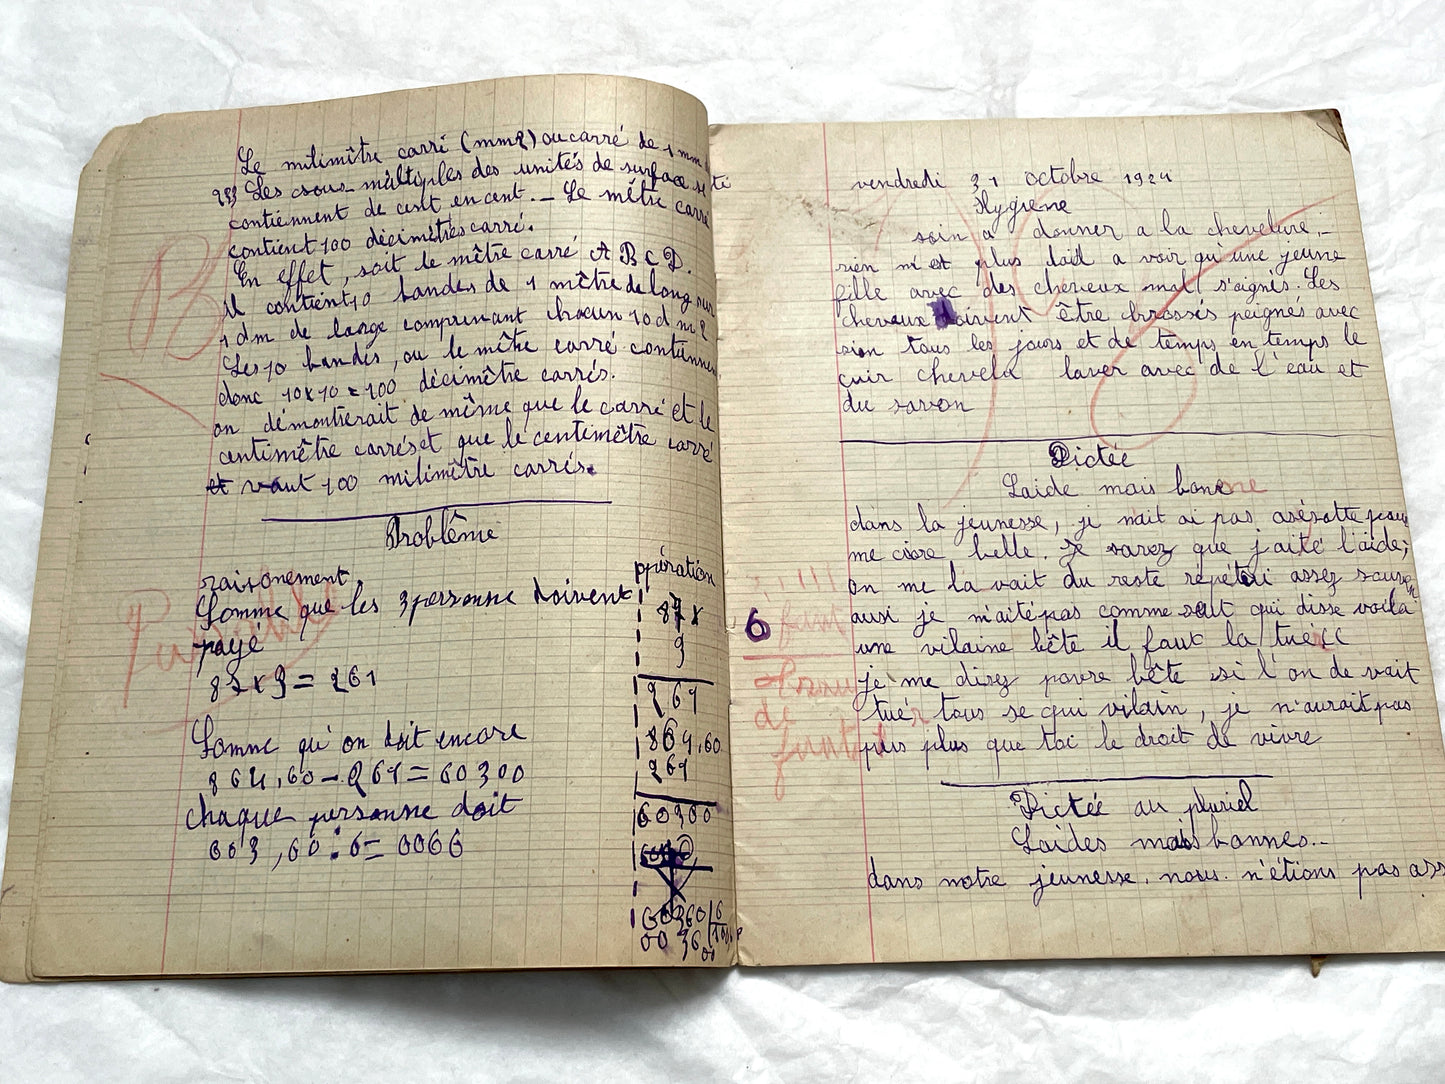 Le milimître carri (mm2) ou carré de 1 mm
233 Les sous-multiples des unités de surface se
contiennent de cent en cent. — Le mêtre carré
contient 100 décimêtres carré.
En effet, soit le mêtre carré A B C D.
il contient 10 bandes de 1 mêtre de long sur
1 dm de large comprenant chacun 10 d m 2
Les 10 bandes, ou le mêtre carré contiennent
donc 10 x 10 = 100 décimêtre carrés.
on démontrerait de même que le carré et le
centimêtre carrés et que le centimêtre carré
et vaut 100 milimêtre carrés.
Problême
raisonement
Somme que les 3 personne doivent
payé
87 x 3 = 261
Somme qu'on doit encore
864,60 - 261 = 60300
chaque personne doit
603,60 : 6 = 0066
opération
87 x
3
261
864,60
261
60360
60360 | 6
00 36
00
B
vendredi 31 octobre 1924
Hygiene
soin a donner a la chevelure. -
rien n'et plus laid a voir qu'une jeune
fille avec des cheveux mal s'aignés. Les
cheveux doivent être brossés peignés avec
soin tous les jours et de temps en temps le
cuir chevelu laver avec de l'eau et
du savon
Dictée
Laide mais bonne
dans la jeunesse, je nait ai pas
me croire belle. Je savez que j'aité l'aide;
on me la vait du reste repété assez
ausi je n'aité pas comme seut qui disse voila
une vilaine bête il faux la tué((
je me disez povre bête si l'on de vait
tuér tous se qui vilain, je n'aurait pas
plus que toi le droit de vivre
6
faut
de
Dictée au pluriel
Laides mais bonnes..
dans notre jeunesse. nous n'étions pas ass